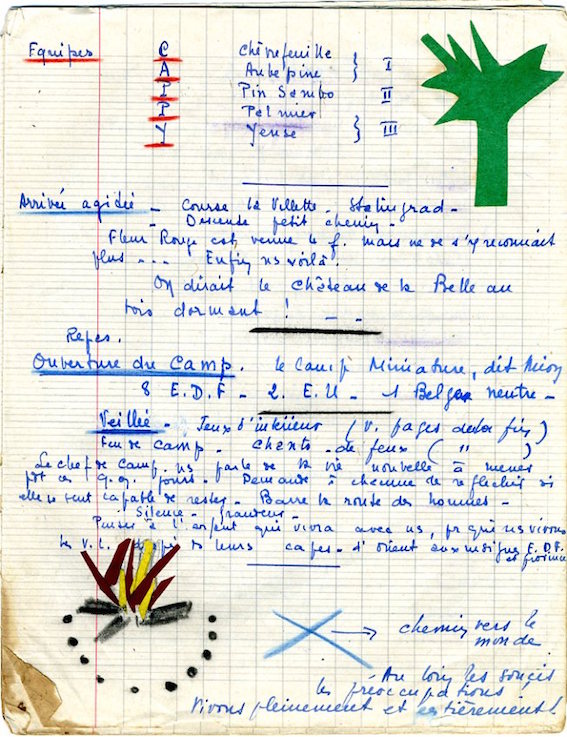 Equipes C Chèvrefeuille
A Aubepine } I
P Pin Sembo II
P Palmier
Y Yeuse } III
Arrivée agidée - Course la Villette - Stalingrad -
- Descense petit chemin -
Fleur Rouge est venue 1 f. mais ne s'y reconnait
plus --- Enfin ns voilà.
On dirait le château de la Belle au
bois dormant ! - -
Repas.
Ouverture du Camp. le Camp Miniature, dit
8 E.D.F - 2. E.U - 1 Belge neutre -
Veillée - Jeux d'intérieur (v. pages de la fin)
Feu de camp - chants de feux ( " )
Le chef de camp ns parle de la vie nouvelle à mener
pdt ces q.q. jours. Demande à chacune de réfléchir si
elle se sent capable de rester - Barre la route des hommes -
Silence - grandeur -
Penser à l'enfant qui vivra avec ns, pr qui ns vivrons
les V.L. leurs capes - d'orient aux insignes E.D.F.
et province
chemin vers le
monde.
Au loin les soucis
les préoccupations
Vivons pleinement et entièrement !